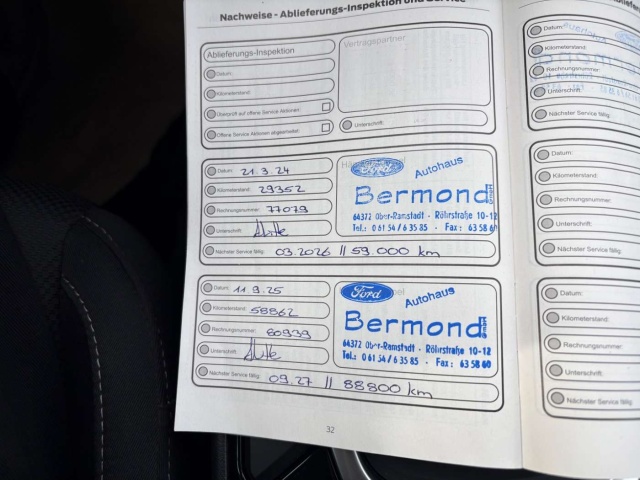 Nachweise - Ablieferungs-Inspektion und Service
Ablieferungs-Inspektion
Vertragspartner
Datum:
Kilometerstand:
Überprüft auf offene Service Aktionen:
Offene Service Aktionen abgearbeitet:
Unterschrift:
Datum: 21.3.24
Kilometerstand: 29352
Rechnungsnummer: 77079
Unterschrift:
Nächster Service fällig: 03.2026 // 59.000 km
Ford
Autohaus
Bermond GmbH
64372 Ober-Ramstadt - Röhrstraße 10-12
Tel.: 0 61 54 / 6 35 85 - Fax: 6 35 86
Datum: 11.9.25
Kilometerstand: 58862
Rechnungsnummer: 80939
Unterschrift:
Nächster Service fällig: 09.27 // 88800 km
Ford
Autohaus
Bermond GmbH
64372 Ober-Ramstadt - Röhrstraße 10-12
Tel.: 0 61 54 / 6 35 85 - Fax: 6 35 86
32
Datum:
Kilometerstand:
Rechnungsnummer:
Unterschrift:
Nächster Service fällig:
Datum:
Kilometerstand:
Rechnungsnummer:
Unterschrift:
Nächster Service fällig:
Datum:
Kilometerstand:
Rechnungsnummer:
Unterschrift:
Nächster Service fällig: